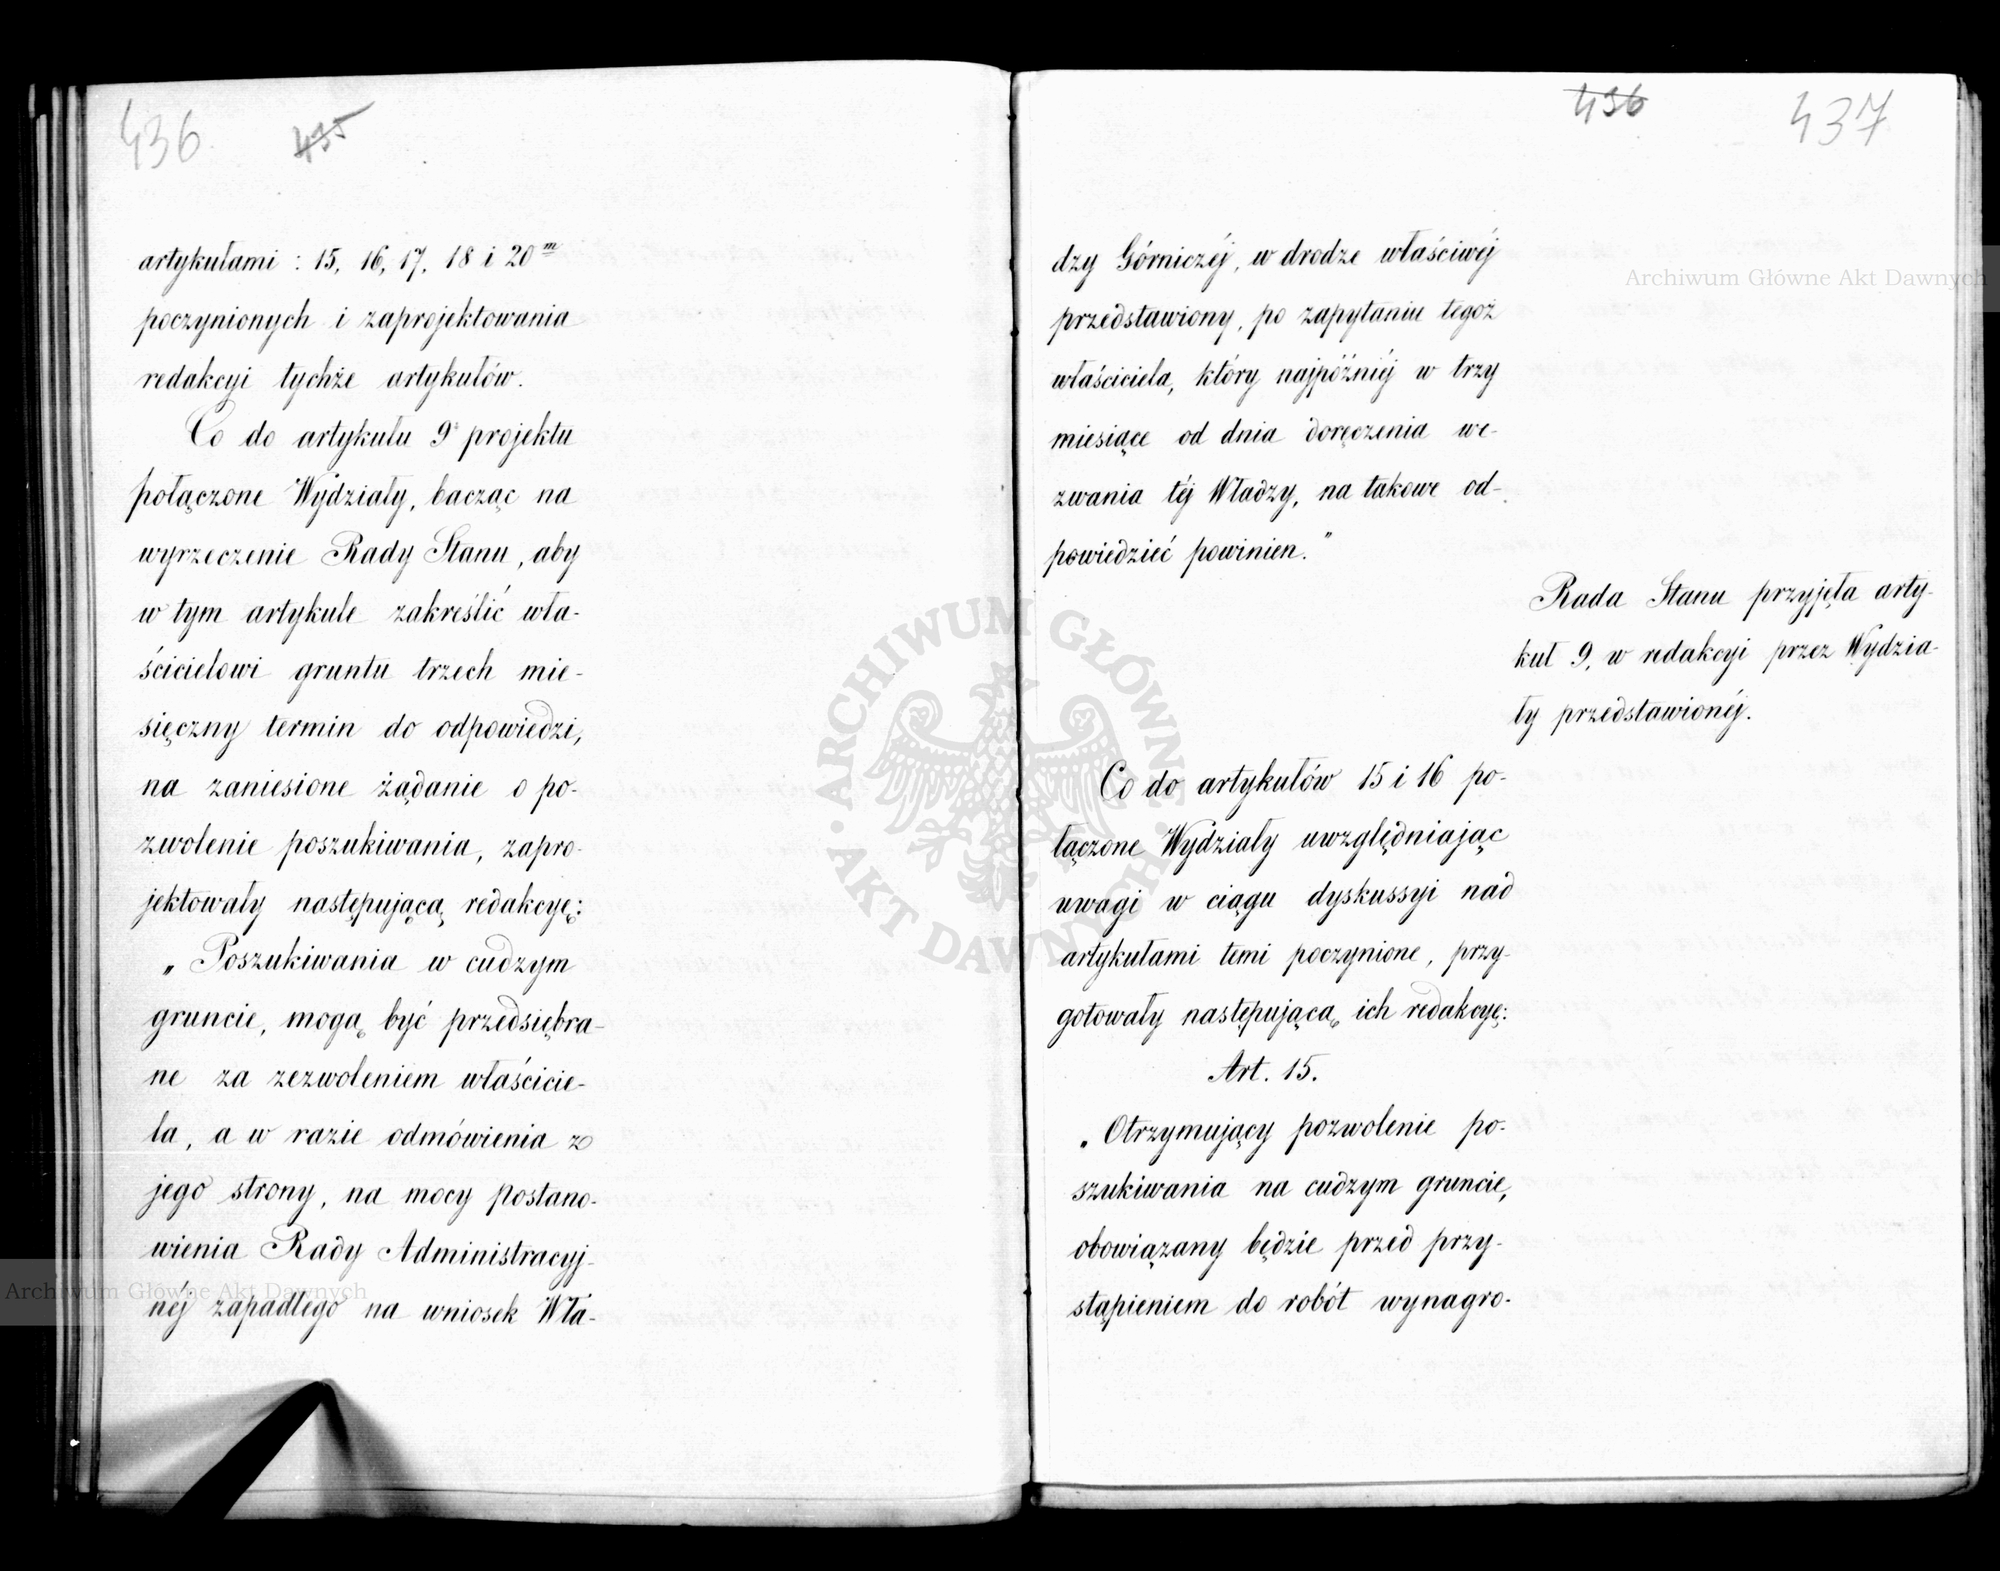 436 435
artykułami : 15, 16, 17, 18 i 20m
poczynionych i zaprojektowania
redakcyi tychże artykułów.
Co do artykułu 9° projektu
połączone Wydziały, bacząc na
wyrzeczenie Rady Stanu, aby
w tym artykule zakreślić wła-
ścicielowi gruntu trzech mie-
sięczny termin do odpowiedzi,
na zaniesione żądanie o po-
zwolenie poszukiwania, zapro-
jektowały następującą redakcyę:
„Poszukiwania w cudzym
gruncie, mogą być przedsiębra-
ne za zezwoleniem właścicie-
la, a w razie odmówienia z
jego strony, na mocy postano-
wienia Rady Administracyj-
néj zapadłego na wniosek Wła-
436 437
dzy Górniczéj, w drodze właściwéj
przedstawiony, po zapytaniu tegoż
właściciela, który najpóźniéj w trzy
miesiące od dnia doręczenia we-
zwania téj Władzy, na takowe od-
powiedzieć powinien."
Rada Stanu przyjęła arty-
kuł 9, w redakcyi przez Wydzia-
ły przedstawionéj.
Co do artykułów 15 i 16 po-
łączone Wydziały uwzględniając
uwagi w ciągu dyskussyi nad
artykułami temi poczynione, przy-
gotowały następującą ich redakcyę:
Art. 15.
„Otrzymujący pozwolenie po-
szukiwania na cudzym gruncie,
obowiązany będzie przed przy-
stąpieniem do robót wynagro-
Archiwum Główne Akt Dawnych
Archiwum Główne Akt Dawnych
ARCHIWUM GŁÓWNE · AKT DAWNYCH ·